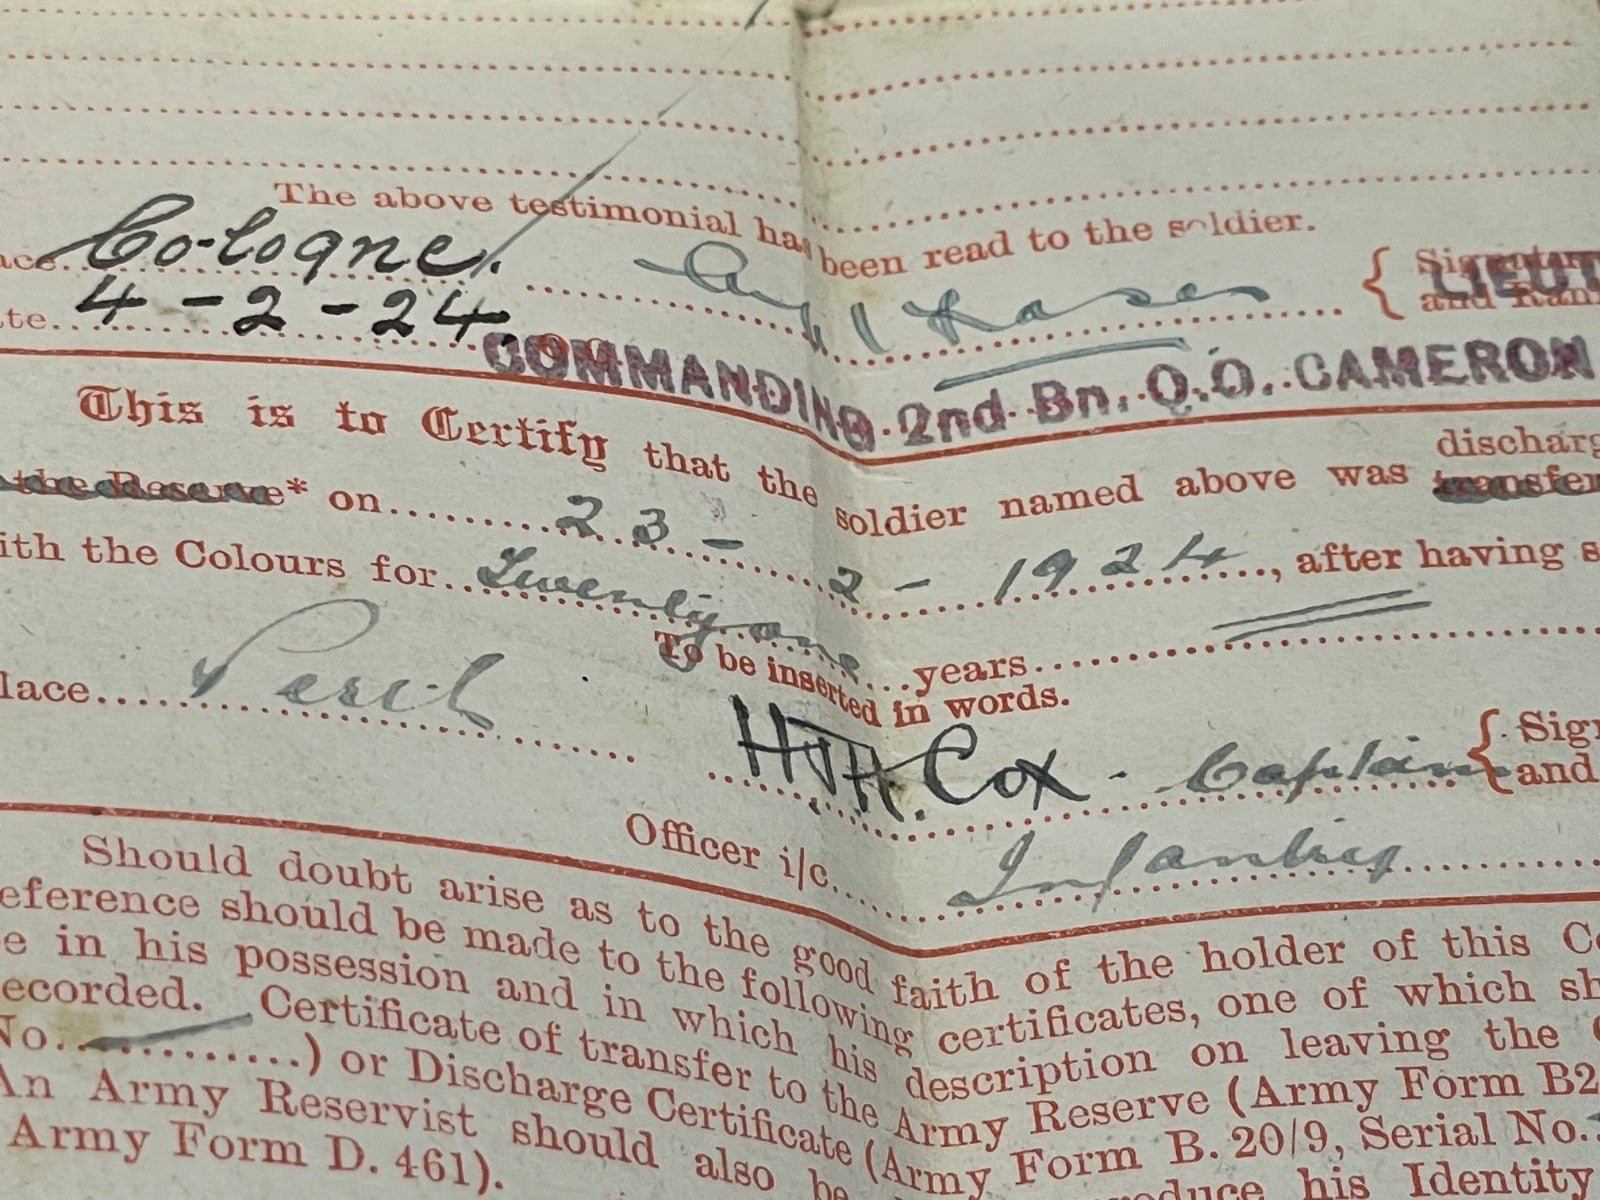 The above testimonial has been read to the soldier.
Cologne.
4-2-24
LIEUT
COMMANDING 2nd Bn. Q.O. CAMERON
This is to Certify that the soldier named above was discharg
the Reserve* on 23-2-1924, after having s
ith the Colours for Twenty one years
To be inserted in words.
lace Perth
H.J.H. Cox - Captain { Sign
and
Officer i/c. Infantry
Should doubt arise as to the good faith of the holder of this C
eference should be made to the following certificates, one of which sh
e in his possession and in which his description on leaving the
ecorded. Certificate of transfer to the Army Reserve (Army Form B2
No. ) or Discharge Certificate (Army Form B. 20/9, Serial No.
An Army Reservist should also be produce his Identity
Army Form D. 461).